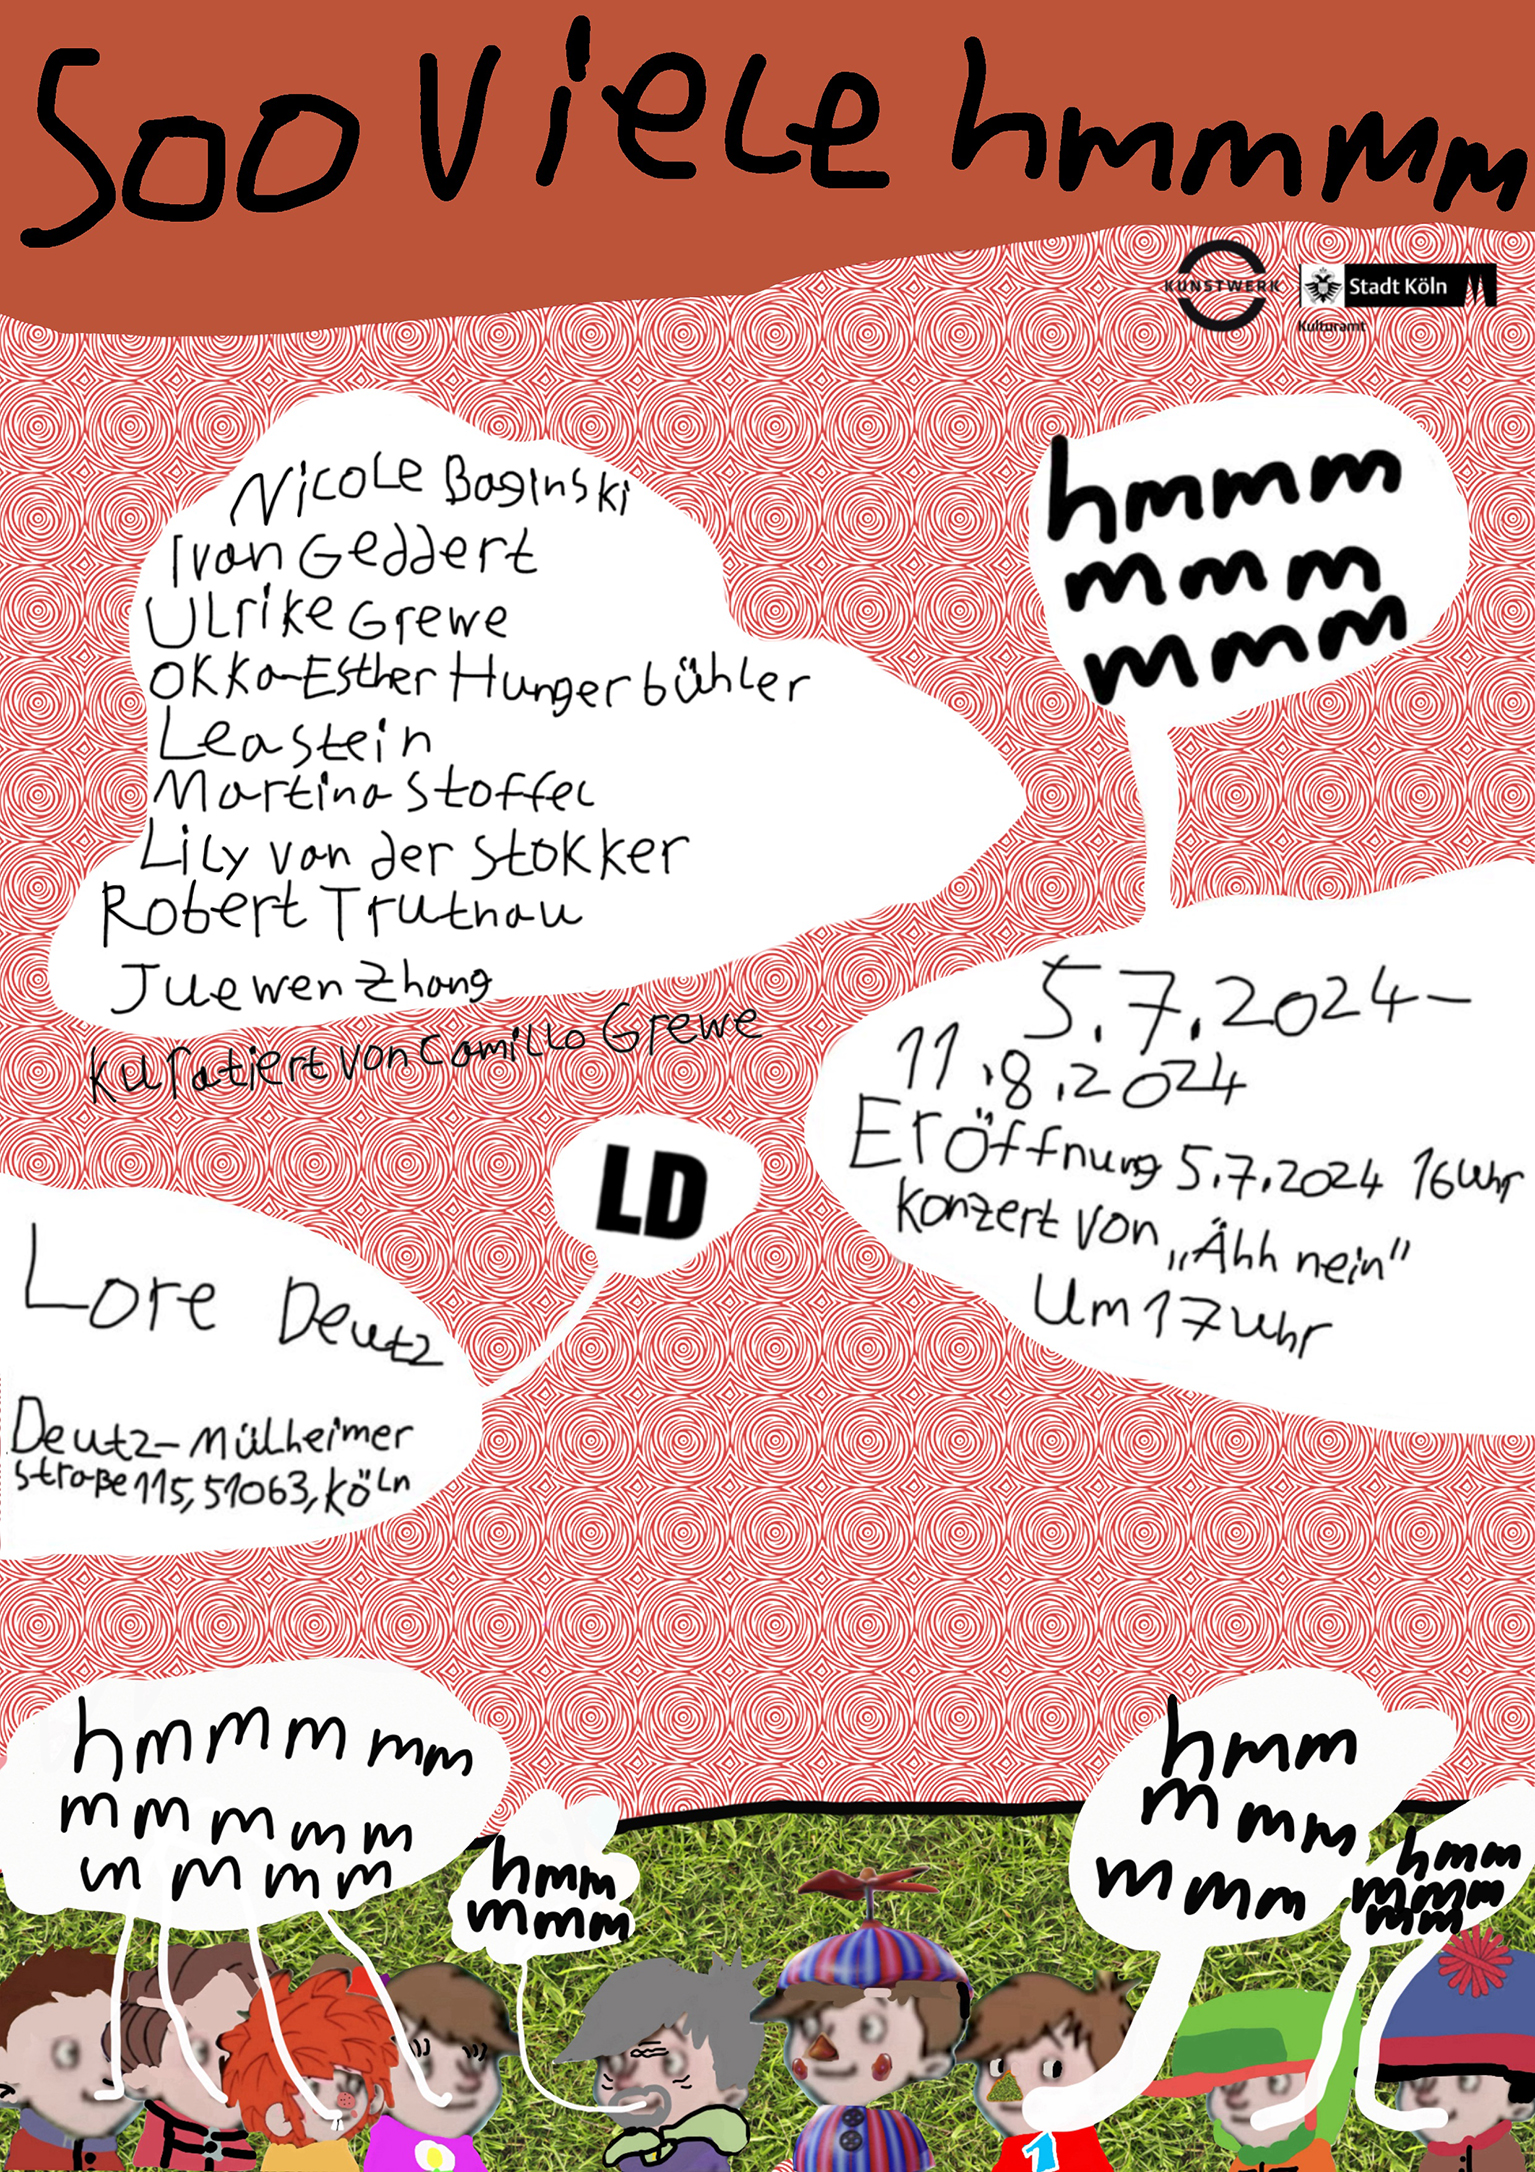 Soo Viele hmmmmm
KUNSTWERK
Stadt Köln
Kulturamt
Nicole Baginski
Ivan Geddert
Ulrike Grewe
Okka-Esther Hungerbühler
Lea Stein
Martina Stoffel
Lily van der Stokker
Robert Trutnau
Juewen Zhang
Kuratiert von Camillo Grewe
hmmm
mmm
mmm
5.7.2024-
11.8.2024
Eröffnung 5.7.2024 16 Uhr
Konzert von „Ähh nein"
Um 17 Uhr
LD
Lore Deutz
Deutz-Mülheimer
Straße 115, 51063, Köln
hmmmmm
mmmmm
mmmm
hmm
mmm
hmm
mmm
mmm
hmm
mmm
mm
1